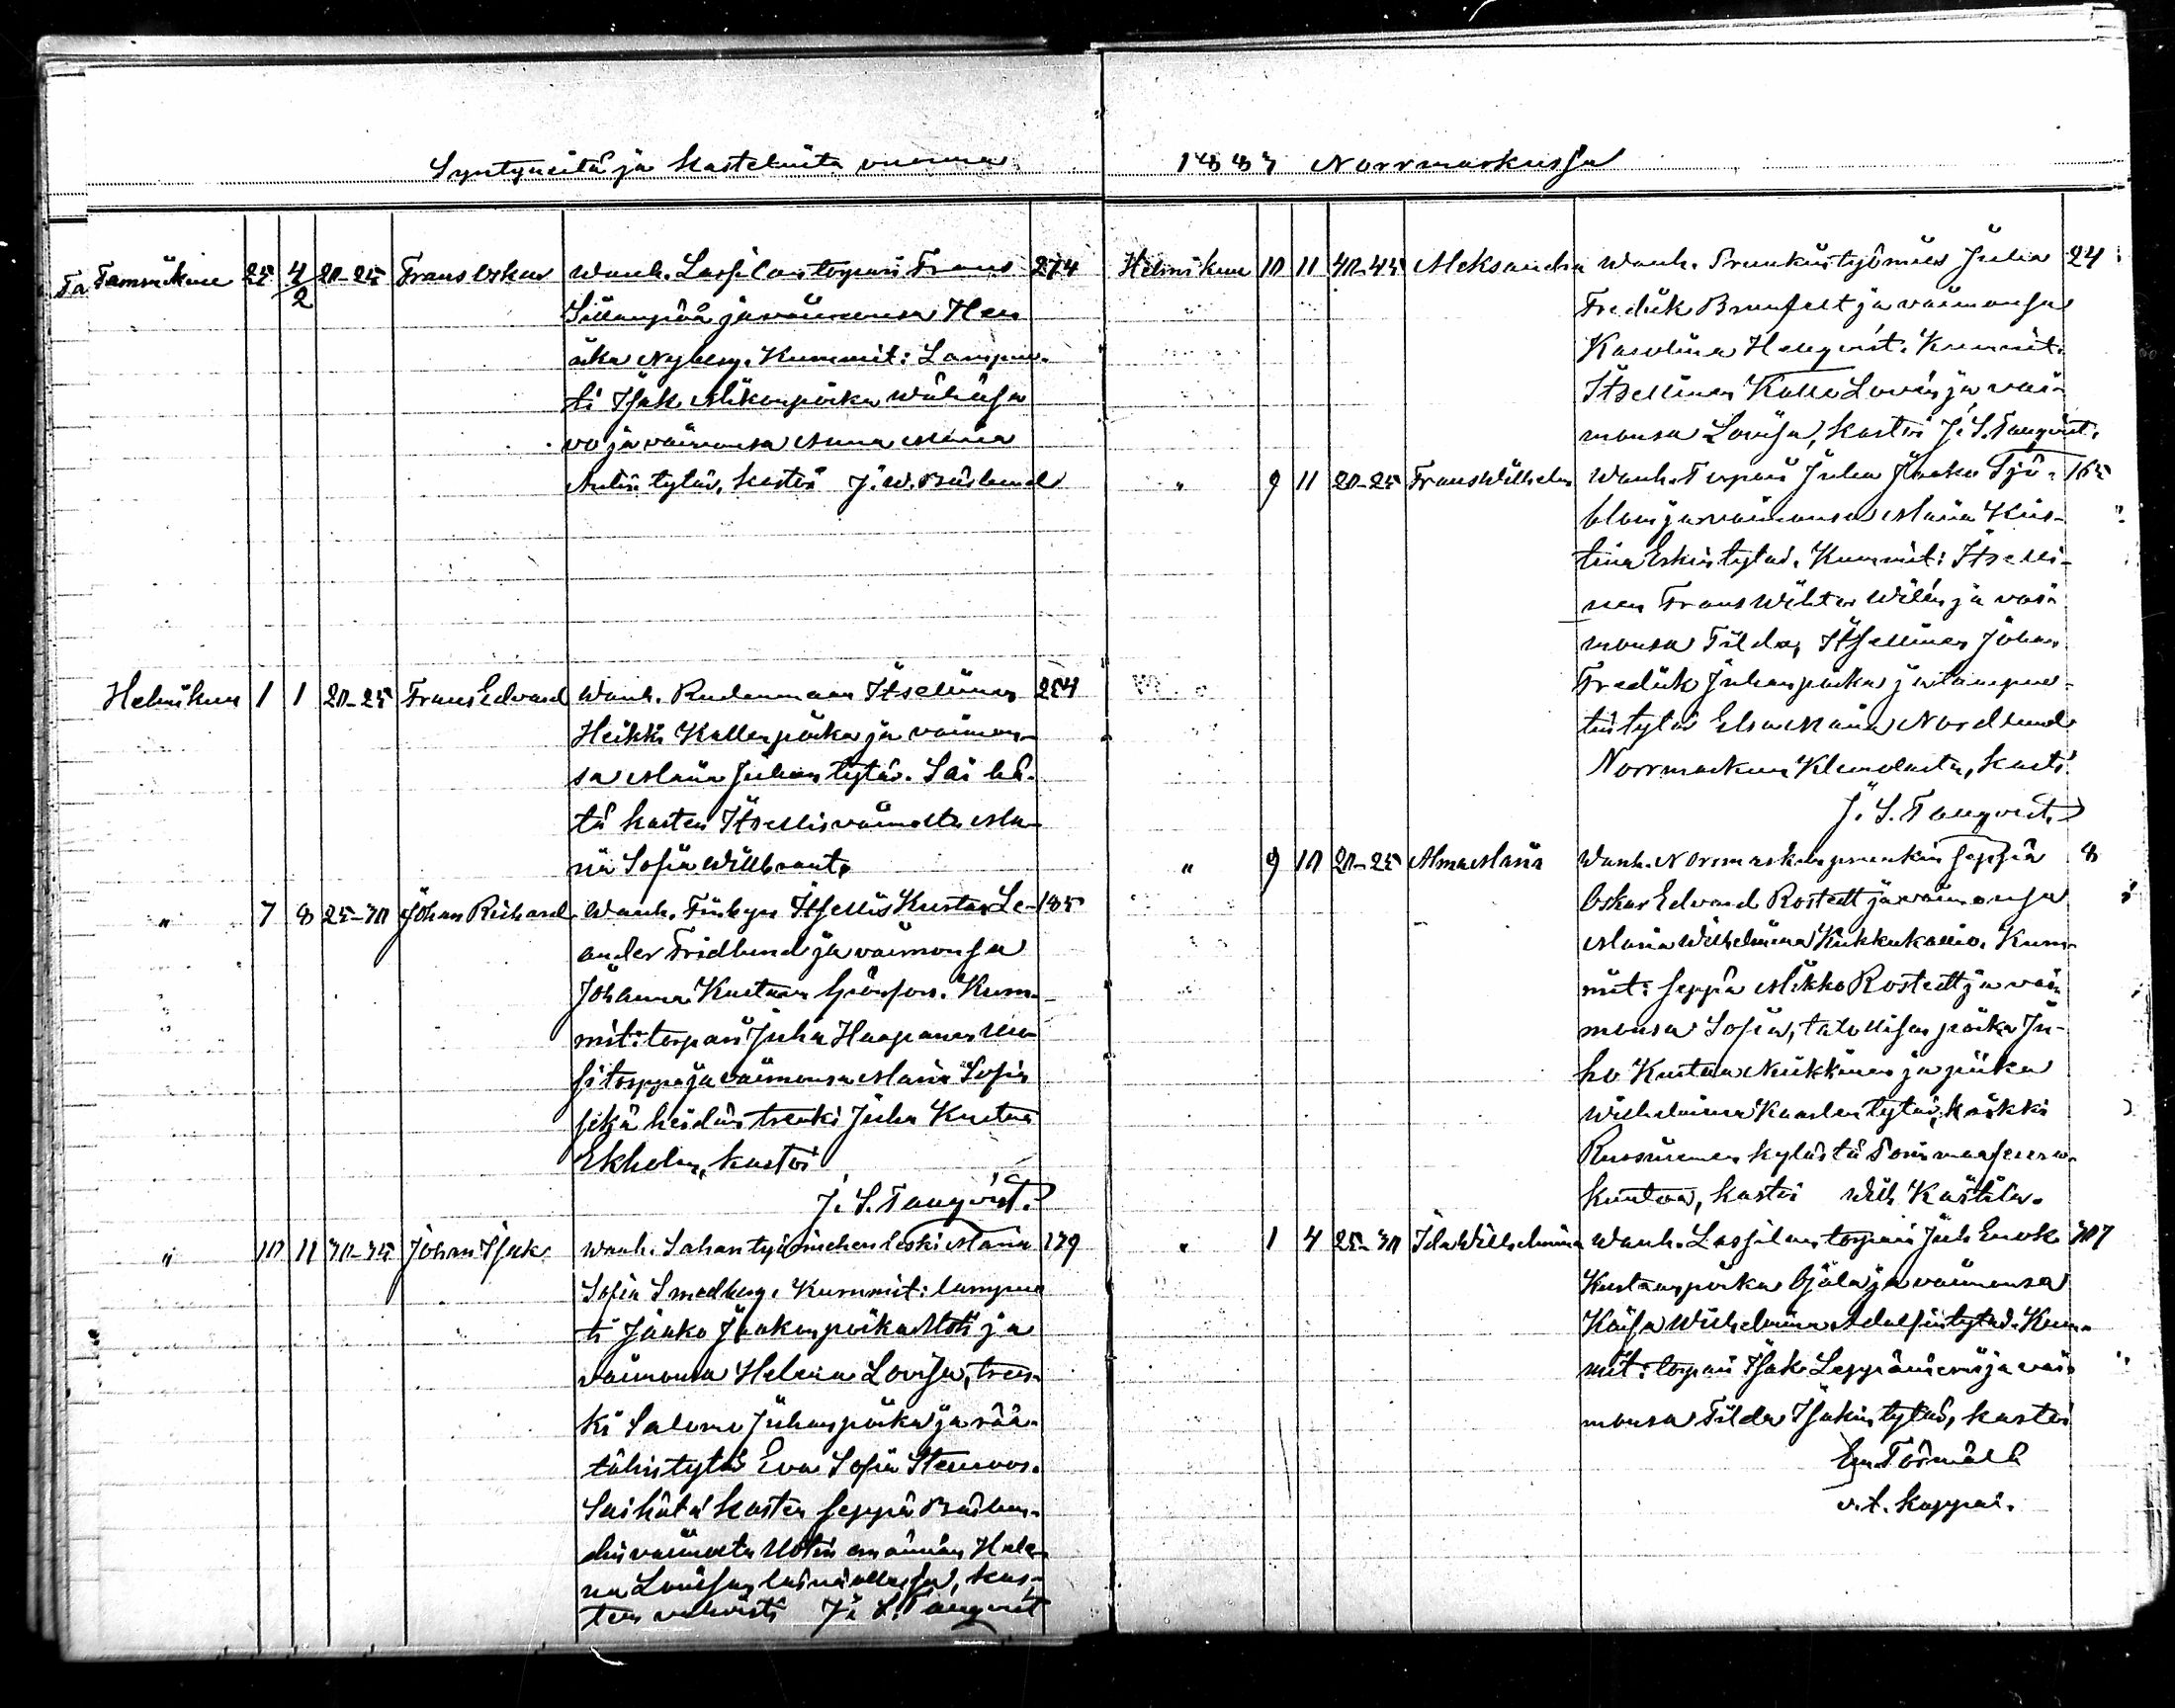 Syntyneitä ja kastetuita vuonna
1887 Norrmarkussa
Tammikuu 25 4/2 20-25 Frans Oskar Wanh. Lassilan torpari Frans 274
Sillanpää ja vaimonsa Hen
rika Nyberg. Kummit: Lampuo-
ti Isak Mikonpoika
vo ja vaimonsa Anna Maria
Antin tytär, kastoi J. W.
Helmikuu 1 1 20-25 Frans Edvard Wanh. Rudanmaan Itsellinen 254
Heikki Kallenpoika ja vaimon-
sa Maria Juhan tytär. Sai hä-
tä kasten Itsellisvaimolta Ma-
ria Sofia Willbrant.
" 7 8 25-30 Johan Richard Wanh. Finbyn Itsellis Kustaa Le- 185
ander Fridlund ja vaimonsa
Johanna Kustava Grönfors. Kum-
mit: torpari Juha Haapanen Uu-
sitorppa ja vaimonsa Maria Sofia
sekä heidän trenki Juha Kustaa
Ekholm, kastoi
J. S. Tanqvist.
" 10 11 30-35 Johan Isak Wanh. Sahan työmiehen leski Maria 139
Sofia Smedberg. Kummit: lampuo
ti Jaako Jaakon poika Uoti ja
vaimonsa Helena Lovisa, tren-
ki Salomo Juhan poika ja rää-
tälin tytär Eva Sofia Stenroos.
Sai hätä kasten seppä
din vaimolta Uotin emännän Hele-
na Lovisan läsnä ollessa, kas-
teen vahvisti J. S. Tanqvist
Helmikuu 10 11 40-45 Aleksandra Wanh. Pruukin työmies Juha 24
Fredrik Brunfelt ja vaimonsa
Karolina Hanqvist. Kummit:
Itsellinen Kalle Lovin ja vai-
monsa Lovisa, kastoi J. S. Tanqvist.
" 9 11 20-25 Frans Wilhelm Wanh. Torpari Juha Jaako Sjö- 165
blom ja vaimonsa Maria Kris-
tiina Erkin tytär. Kummit: Itselli-
nen Frans Wihtor Wilén ja vai-
monsa Tilda, Itsellinen Johan
Fredrik Juhanpoika ja lampuo-
tin tytär Elsa Maria Nordlund
Norrmarkun, kastoi
J. S. Tanqvist.
" 9 10 20-25 Alma Maria Wanh. Norrmarkun pruukin seppä 8
Oskar Edvard Rostedt ja vaimonsa
Maria Wilhelmina Kukkukallio. Kum-
mit: seppä Mikko Rostedt ja vai-
monsa Sofia, talollisen poika Ju-
ho Kustaa Nikkinen ja piika
Wilhelmina Kaarlen tytär, kaikki
Ruosniemen kylästä Porin maaseura-
kuntaa, kastoi Wilh. Kastila.
" 1 4 25-30 Ida Wilhelmina Wanh. Lassilan torpari Juh. Enok 307
Kustaan poika Ojala ja vaimonsa
Kaisa Wilhelmina Adolfin tytär. Kum-
mit: torpari Isak Leppäniemi ja vai-
monsa Tilda Isakin tytär, kastoi
Em. Törmälä
v.t. kappal.